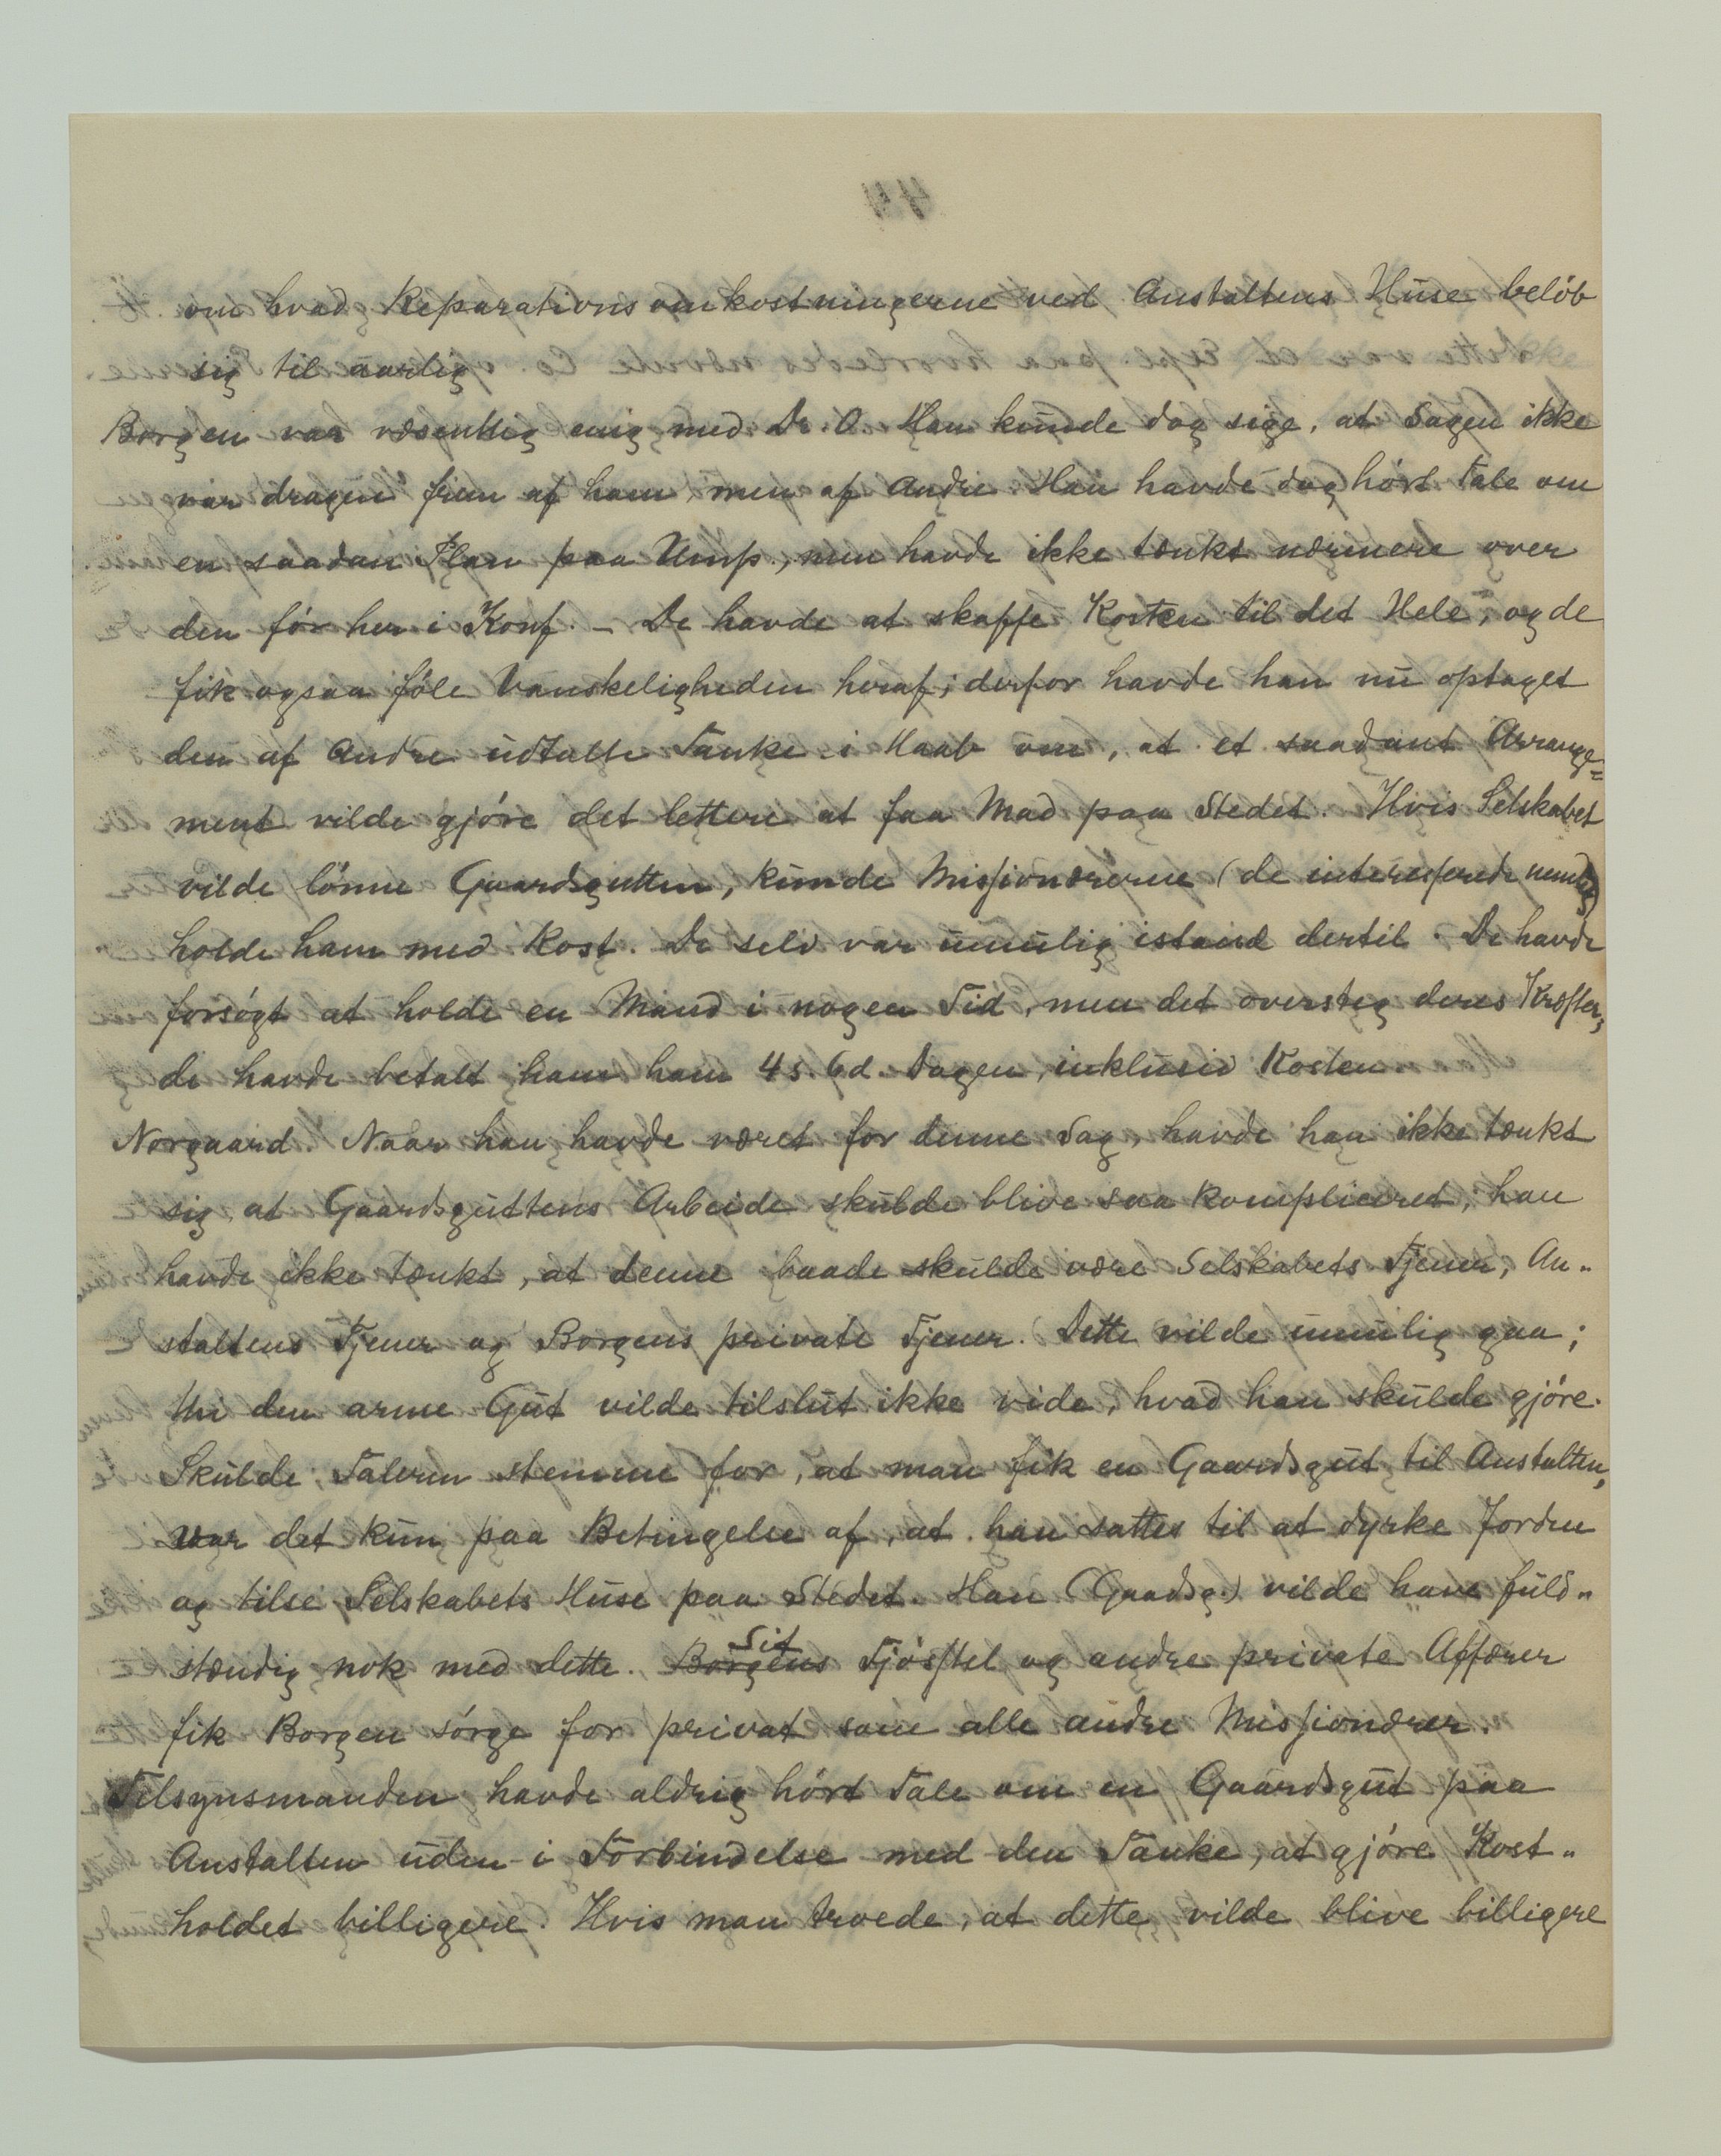 om hvad Reparationsomkostningerne ved Anstaltens Huse beløb
sig til aarlig
Borgen var væsentlig enig med Dr O. Han kunde dog sige, at Sagen ikke
var dragen frem af ham, men af Andre. Han havde dog hørt Tale om
en saadan Plan paa Ump., men havde ikke tænkt nærmere over
den før her i Konf. – De havde at skaffe Kosten til det Hele, og de
fik ogsaa føle Vanskeligheden heraf; derfor havde han nu optaget
den af Andre udtalte Tanke i Haab om, at et saadant Arrange=
ment vilde gjøre det lettere at faa Mad paa Stedet. Hvis Selskabet
vilde lønne Gaardsgutten, kunde Missionærerne (de interesserede nemlig)
holde ham med Kost. De selv var umulig istand dertil. De havde
forsøgt at holde en Mand i nogen Tid, men det oversteg deres Kræfter;
de havde betalt ham ham 4 s. 6 d. Dagen, inklusiv Kosten
Norgaard. Naar han havde været for denne Sag, havde han ikke tænkt
sig, at Gaardsguttens Arbeide skulde blive saa kompliceret; han
havde ikke tænkt, at denne baade skulde være Selskabets Tjener, An„
staltens Tjener og Borgens private Tjener. Dette vilde umulig gaa;
thi den arme Gut vilde tilslut ikke vide, hvad han skulde gjøre.
Skulde Taleren stemme for, at man fik en Gaardsgut til Anstalten,
var det kun paa Betingelse af, at han sattes til at dyrke Jorden
og tilse Selskabets Huse paa Stedet. Han (Gaadsg.) vilde have fuld„
stændig nok med dette. Borgens Sit Fjøsstel og andre private Affærer
fik Borgen sørge for privat som alle andre Missionærer.
Tilsynsmanden havde aldrig hørt Tale om en Gaardsgut paa
Anstalten uden i Forbindelse med den Tanke, at gjøre Kost„
holdet billigere. Hvis man troede, at dette vilde blive billigere